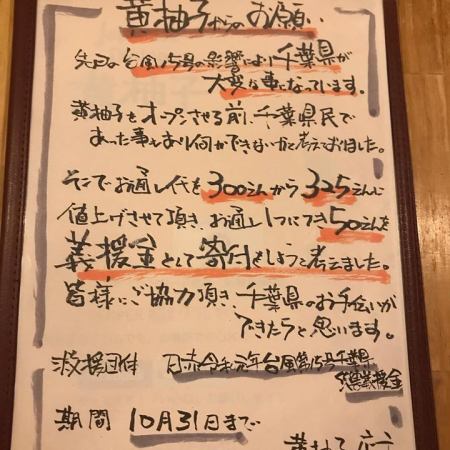 黄柚子からのお願い
先日の台風15号の影響により千葉県が
大変な事になっています。
黄柚子をオープンさせる前、千葉県民で
あった事もあり何かできないかと考えておりました。
そこでお通し代を300えんから325えんに
値上げさせて頂き、お通し1つにつき50えんを
義援金として寄付をしようと考えました。
皆様にご協力頂き、千葉県のお手伝いが
できたらと思います。
救援団体 日赤令和元年台風第15号千葉県
災害義援金
期間 10月31日まで
黄柚子 店主